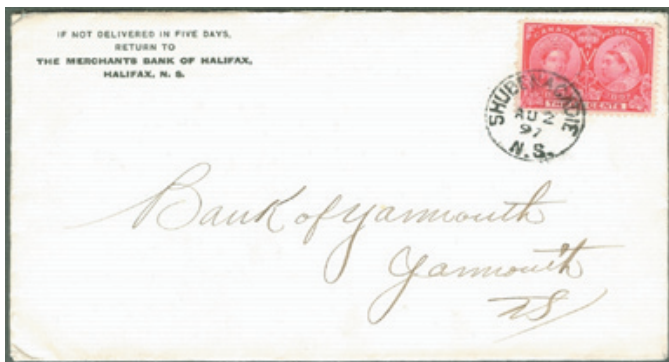 IF NOT DELIVERED IN FIVE DAYS,
RETURN TO
THE MERCHANTS BANK OF HALIFAX,
HALIFAX, N. S.
CANADA POSTAGE
THREE CENTS
SHUBENACADIE
AU 2
97
N.S.
Bank of Yarmouth
Yarmouth
NS